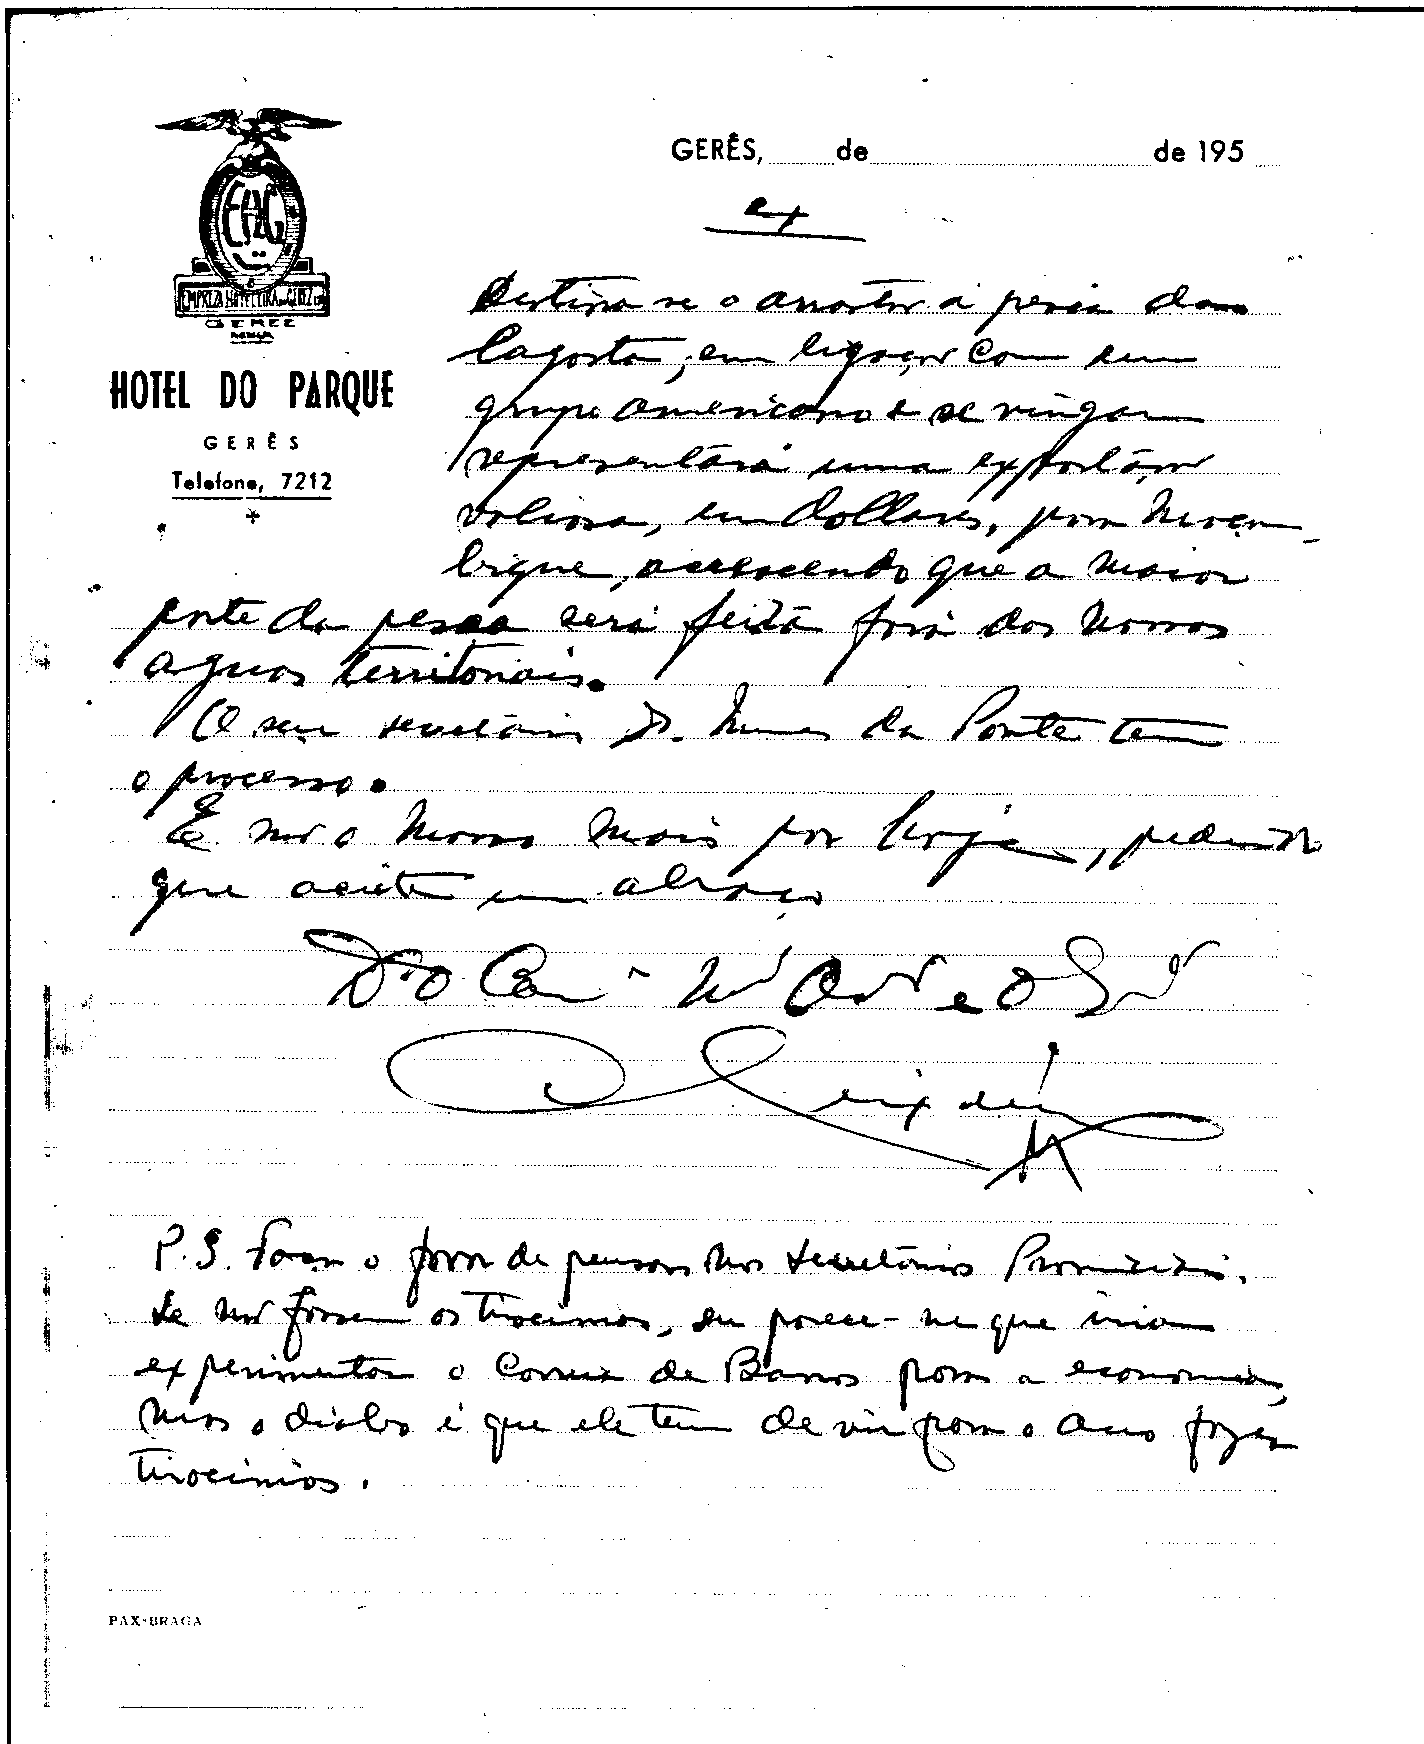 GERÊS, de de 195
EHG
EMPREZA HOTELEIRA do GEREZ
GEREZ
HOTEL DO PARQUE
GERÊS
Telefone, 7212
Destina se o arrastar á pesca da
lagosta, em ligação com um
grupo americano e se vingar
representará uma exportação
valiosa, em dollares, para Moçam-
bique, acrescendo que a maior
parte da pesca será feita fora das nossas
aguas territoriais.
O seu secretário Dr. Nunes da Ponte tem
o processo.
E não o maço mais por hoje, pedindo
que aceite um abraço
Do
P.S. Faça o favor de pensar nos secretários Provinciais.
Se não fossem os tirocinios, eu parece-me que iria
experimentar o Correia de Barros para a economia,
mas o diabo é que ele tem de vir para o ano fazer
tirocinios.
PAX-BRAGA